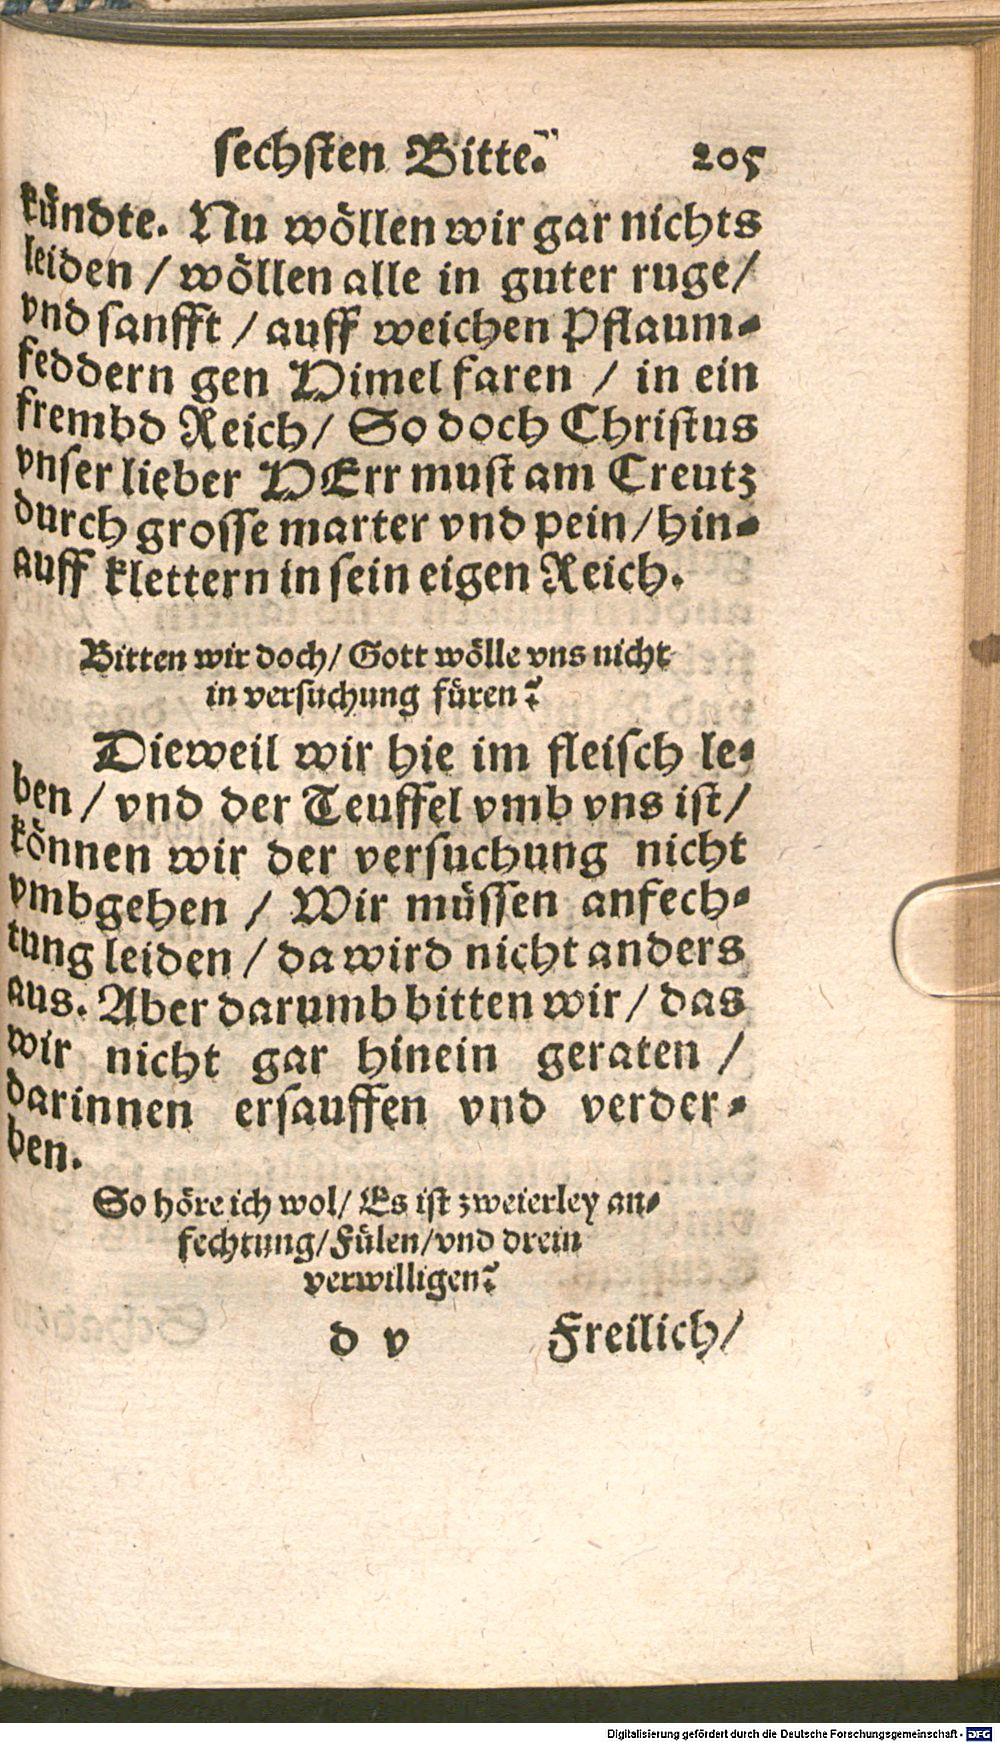 sechsten Bitte. 205
kündte. Nu wöllen wir gar nichts
leiden / wöllen alle in guter ruge/
vnd sanfft / auff weichen Pflaum-
feddern gen Himel faren / in ein
frembd Reich/ So doch Christus
vnser lieber HErr must am Creutz
durch grosse marter vnd pein/hin-
auff klettern in sein eigen Reich.
Bitten wir doch/ Gott wölle vns nicht
in versuchung füren?
Dieweil wir hie im fleisch le-
ben / vnd der Teuffel vmb vns ist/
können wir der versuchung nicht
vmbgehen / Wir müssen anfech-
tung leiden / da wird nicht anders
aus. Aber darumb bitten wir/ das
wir nicht gar hinein geraten /
darinnen ersauffen vnd verder-
ben.
So höre ich wol/ Es ist zweierley an-
fechtung/Fülen/vnd drein
verwilligen?
d v Freilich/
Digitalisierung gefördert durch die Deutsche Forschungsgemeinschaft - DFG